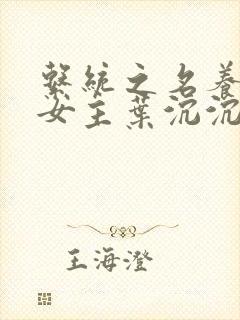 繫統之名養
女主葉沉沉
王海澄